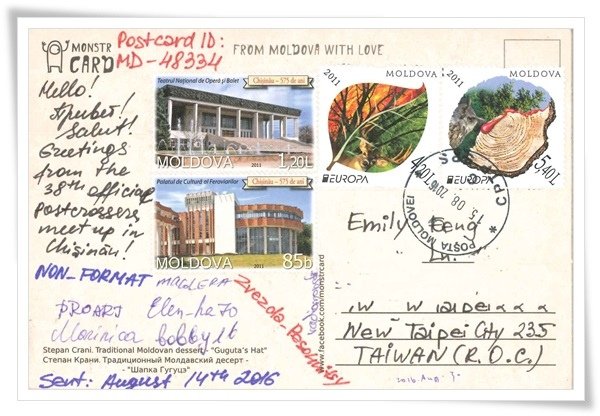 MONSTR
CARD
Postcard ID:
MD-48334
FROM MOLDOVA WITH LOVE
Hello!
Привет!
Salut!
Greetings
from the
38th official
Postcrossers
meet up in
Chișinău!
NON-FORMAT
PROARJ Elen-ha70
Marinica bobby16
Zvezda-Rosohnitsy
Stepan Crani. Traditional Moldovan dessert - "Guguta's Hat"
Степан Крани. Традиционный Молдавский десерт -
- "Шапка Гугуцэ"
Sent: August 14th 2016
www.facebook.com/monstrcard
Teatrul Național de Operă și Balet
Chișinău – 575 de ani
MOLDOVA
2011
1,20L
Palatul de Cultură al Feroviarilor
Chișinău – 575 de ani
MOLDOVA
2011
85b
2011
MOLDOVA
4,20L
EUROPA
2011
MOLDOVA
5,40L
EUROPA
POȘTA MOLDOVEI
15 08 2016
Emily
New Taipei City 235
TAIWAN (R.O.C.)